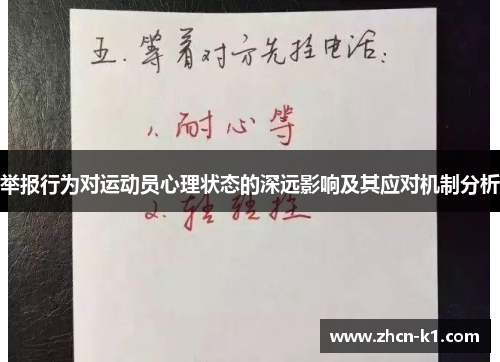 五.等着对方先挂电话:
1.耐心等
举报行为对运动员心理状态的深远影响及其应对机制分析
2.轻轻挂
www.zhcn-k1.com